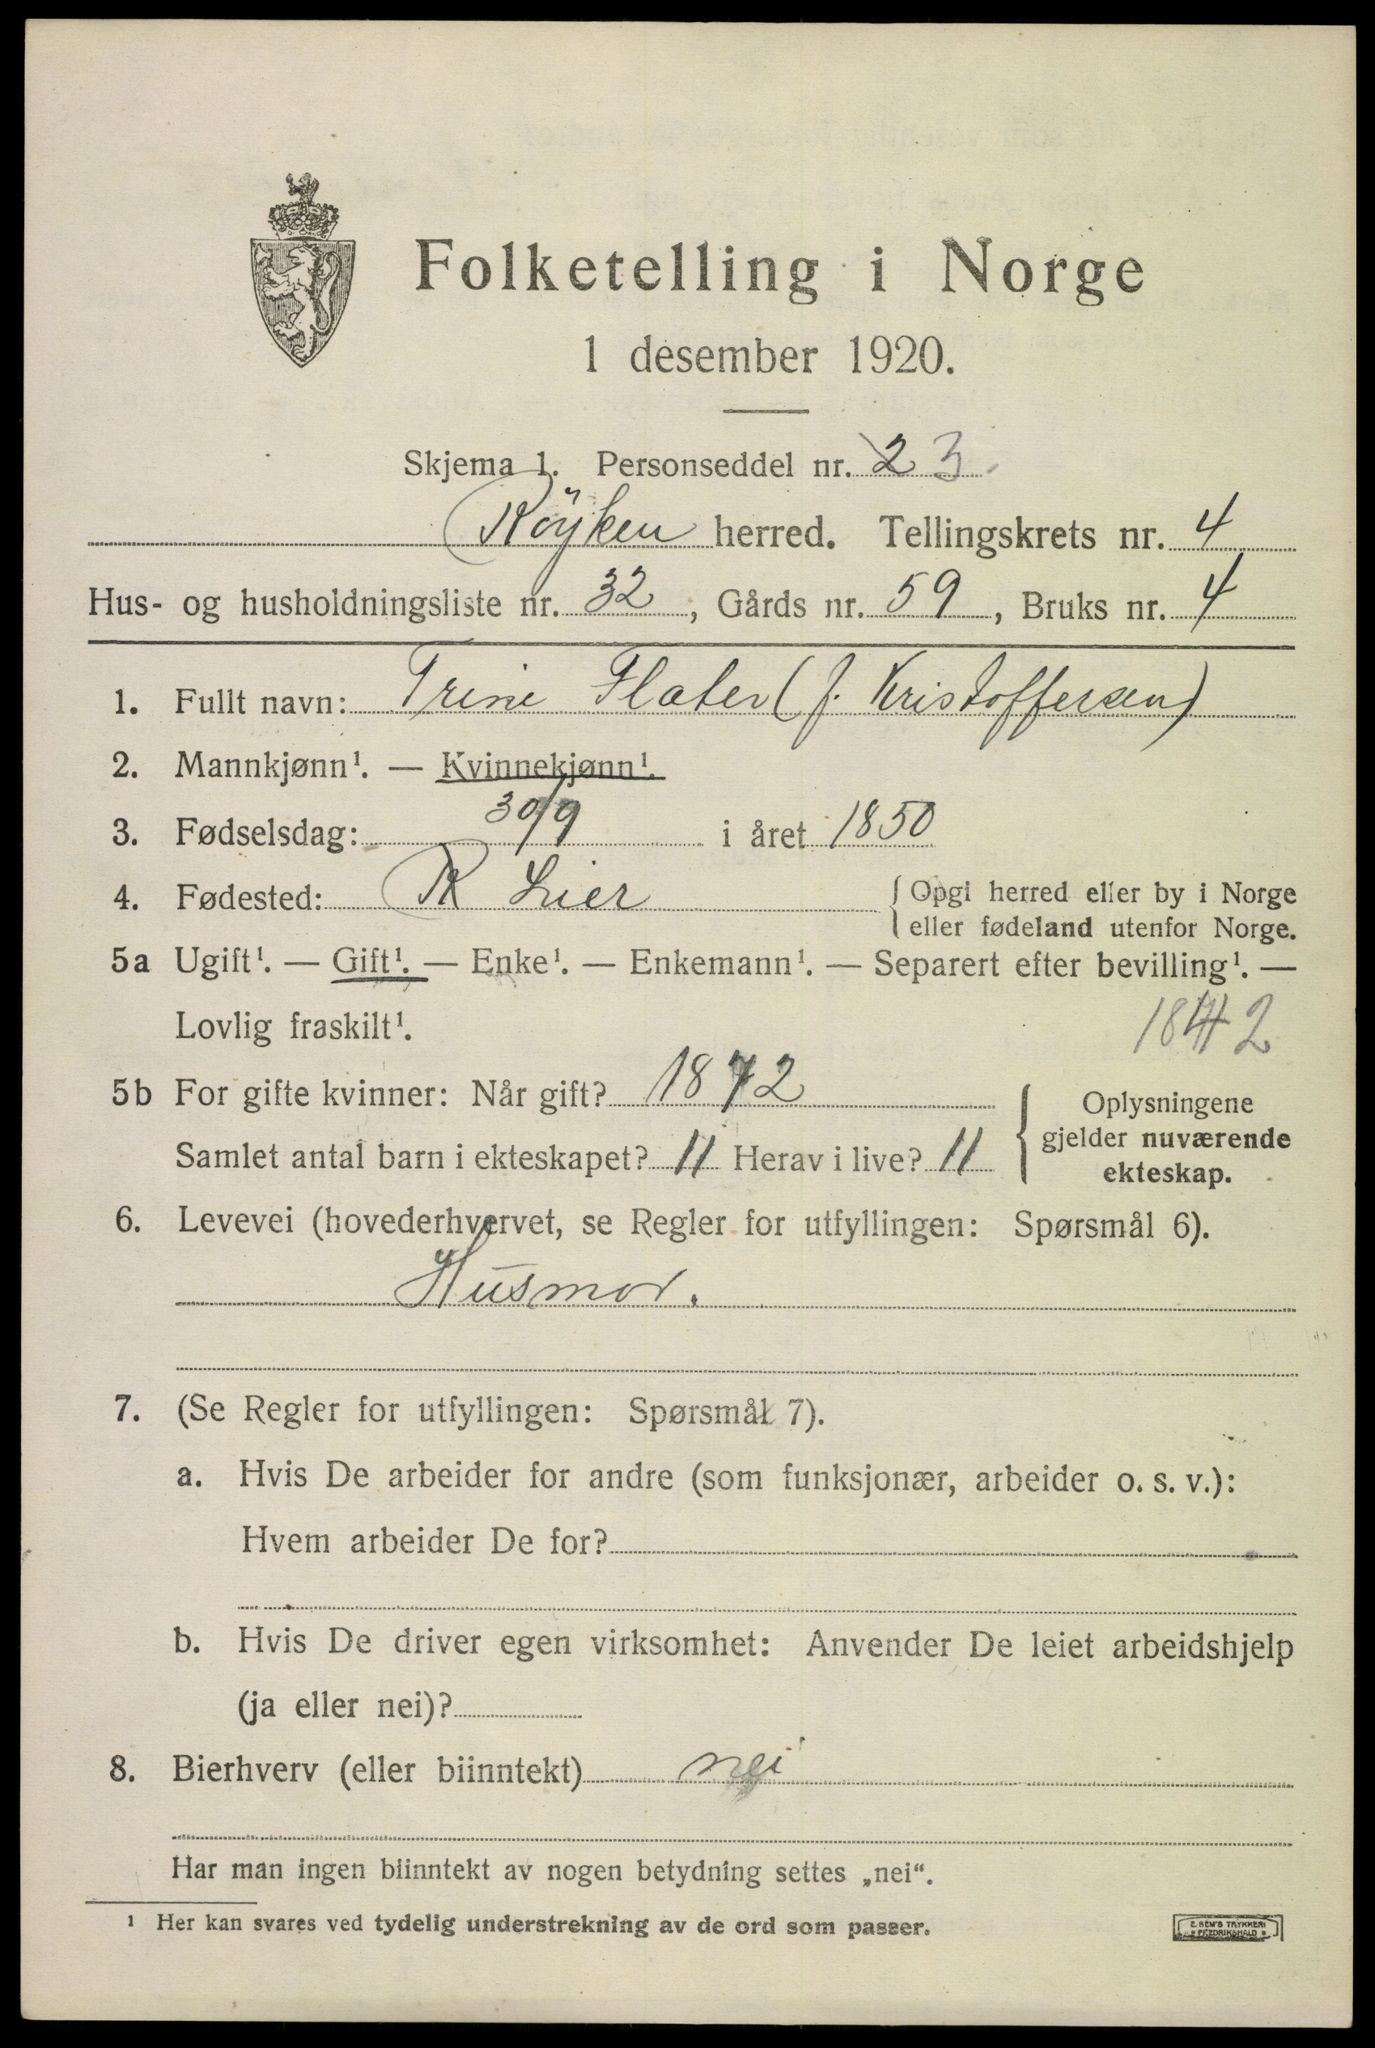 Folketelling i Norge
1 desember 1920.
Skjema 1. Personseddel nr. 2 3.
Röyken herred. Tellingskrets nr. 4
Hus- og husholdningsliste nr. 32, Gårds nr. 59, Bruks nr. 4
1. Fullt navn: Trine Flaten (f. Kristoffersen)
2. Mannkjønn¹. — Kvinnekjønn¹.
3. Fødselsdag: 30/9 i året 1850
4. Fødested: R Lier { Opgi herred eller by i Norge
{ eller fødeland utenfor Norge.
5a Ugift¹. — Gift¹. — Enke¹. — Enkemann¹. — Separert efter bevilling¹. —
Lovlig fraskilt¹.
5b For gifte kvinner: Når gift? 1872 { Oplysningene
gjelder nuværende
Samlet antal barn i ekteskapet? 11 Herav i live? 11
ekteskap.
6. Levevei (hovederhvervet, se Regler for utfyllingen: Spørsmål 6).
Husmor.
7. (Se Regler for utfyllingen: Spørsmål 7).
a. Hvis De arbeider for andre (som funksjonær, arbeider o. s. v.):
Hvem arbeider De for?
b. Hvis De driver egen virksomhet: Anvender De leiet arbeidshjelp
(ja eller nei)?
8. Bierhverv (eller biinntekt) nei
Har man ingen biinntekt av nogen betydning settes „nei“.
¹ Her kan svares ved tydelig understrekning av de ord som passer.
E. SEM'S TRYKKERI
FREDRIKSHALD